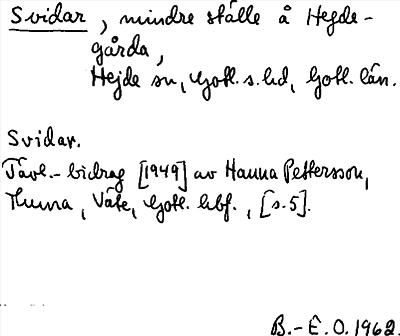 Svidar, mindre ställe å Hejde-
gårda,
Hejde sn, Gotl. s. hd, Gotl. län.
Svidar.
Tävl.-bidrag [1949] av Hanna Pettersson,
Väte, Gotl. hbf., [s. 5].
B.-E.O. 1962.